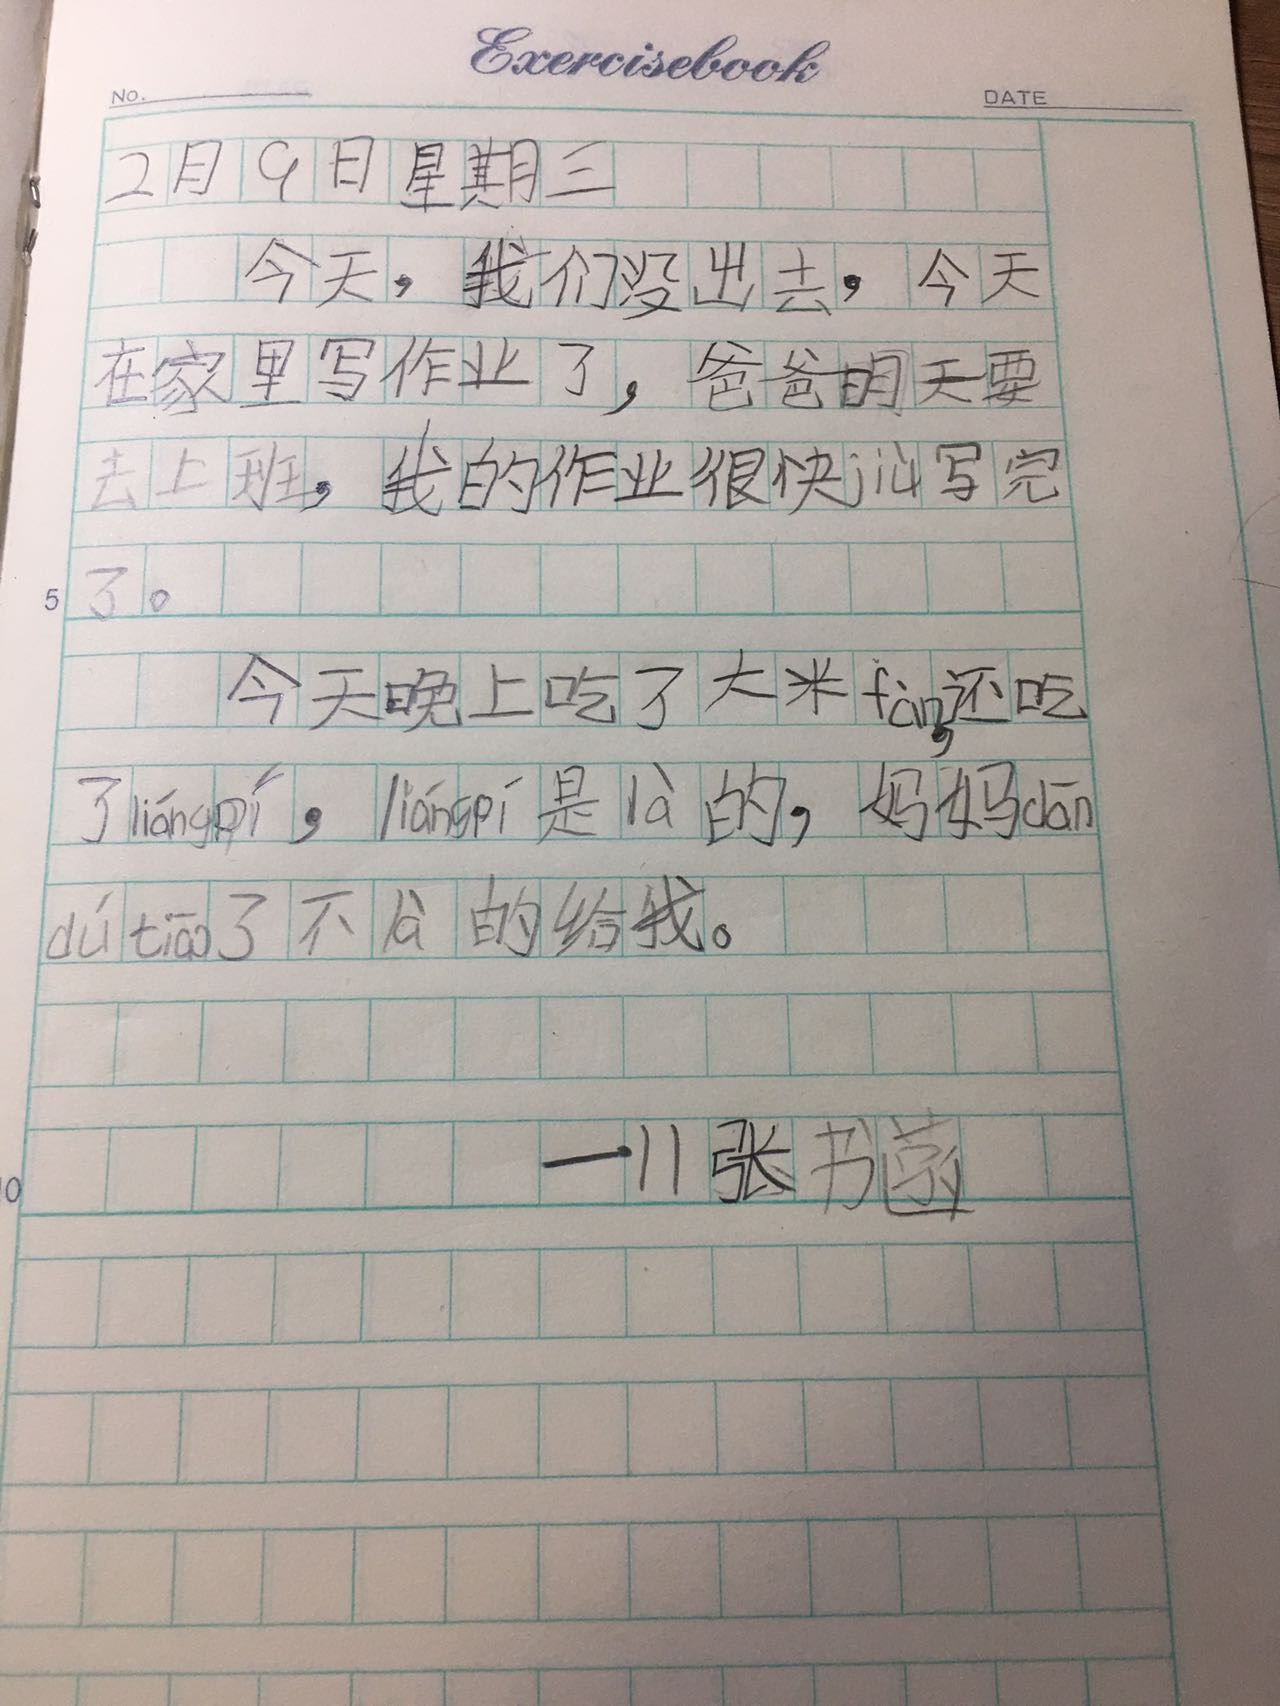 Exercisebook
NO. DATE
2月9日星期三
今天，我们没出去，今天
在家里写作业了，爸爸明天要
去上班，我的作业很快jiù写完
5 了。
今天晚上吃了大米fàn，还吃
了liángpí，liángpí是là的，妈妈dān
dú tiāo了不là的给我。
10 一11张书